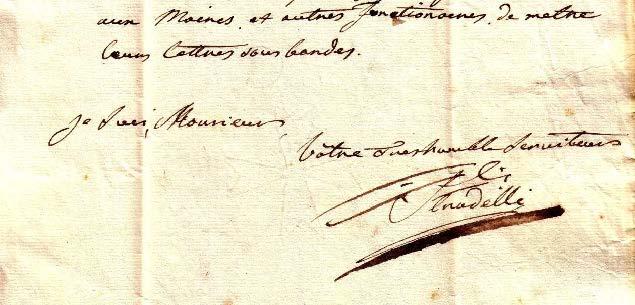 aux Maires et autres fonctionaires, de metre
leurs lettres sous bandes.
Je suis, Monsieur,
Vôtre tres humble Serviteur